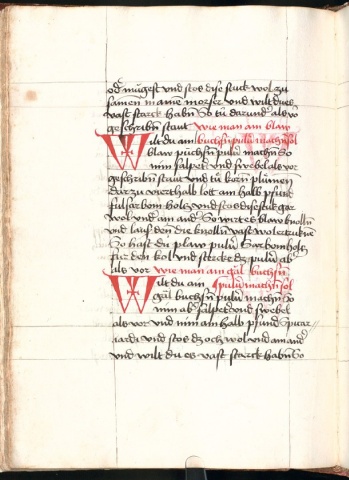 od mugest vnd stos dise stuck wol zu
samen in ainē morser vnd wilt dues
vast starck habn So tu darund als vor
geschribn staut wie man ain blaw
Wilt du ain buchsn pulu machn sol
blaw puchsn pulu machn So
nim salpet vnd swebel als vor
geschribn staut vnd tu korn plumen
dar zu vierthalb lott ain halb pfund
fulsarbom holtz vnd stos dise stuck gar
wol vnd ain and So wirt es blaw knolln
vnd lauß den die knolln vast wol truckne
So hast du plaw pulu Sarbomholtz
für den kol vnd sterck dz pulu ab
als vor wie man ain gäl buchsn
Wilt du ain pulu machn sol
gäl buchsn pulu machn So
nim ab salpet vnd swebel
als vor vnd nim ain halb pfund Spicar
iardi vnd stos dz och wol vnd ain and
vnd wilt du es vast starck habn So